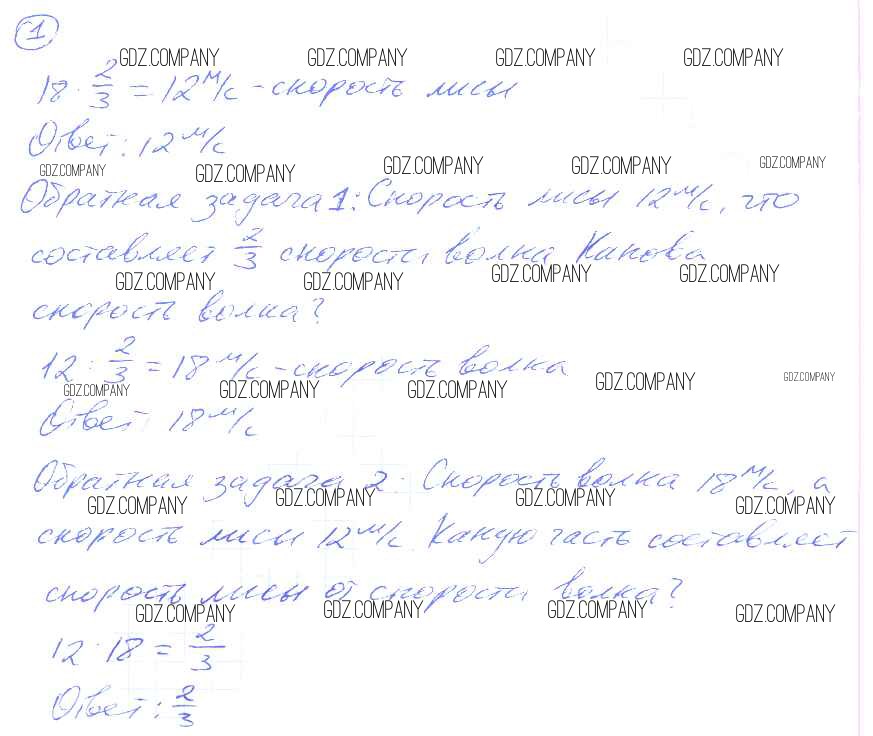 1
GDZ.COMPANY GDZ.COMPANY GDZ.COMPANY GDZ.COMPANY
18 · 2/3 = 12 м/с - скорость лисы
Ответ: 12 м/с
GDZ.COMPANY GDZ.COMPANY GDZ.COMPANY GDZ.COMPANY GDZ.COMPANY
Обратная задача 1: Скорость лисы 12 м/с, что
составляет 2/3 скорости волка Какова
GDZ.COMPANY GDZ.COMPANY GDZ.COMPANY GDZ.COMPANY
скорость волка?
12 : 2/3 = 18 м/с - скорость волка
GDZ.COMPANY GDZ.COMPANY GDZ.COMPANY GDZ.COMPANY GDZ.COMPANY
Ответ: 18 м/с
Обратная задача 2: Скорость волка 18 м/с, а
GDZ.COMPANY GDZ.COMPANY GDZ.COMPANY GDZ.COMPANY
скорость лисы 12 м/с. Какую часть составляет
скорость лисы от скорости волка?
GDZ.COMPANY GDZ.COMPANY GDZ.COMPANY GDZ.COMPANY
12 : 18 = 2/3
Ответ: 2/3